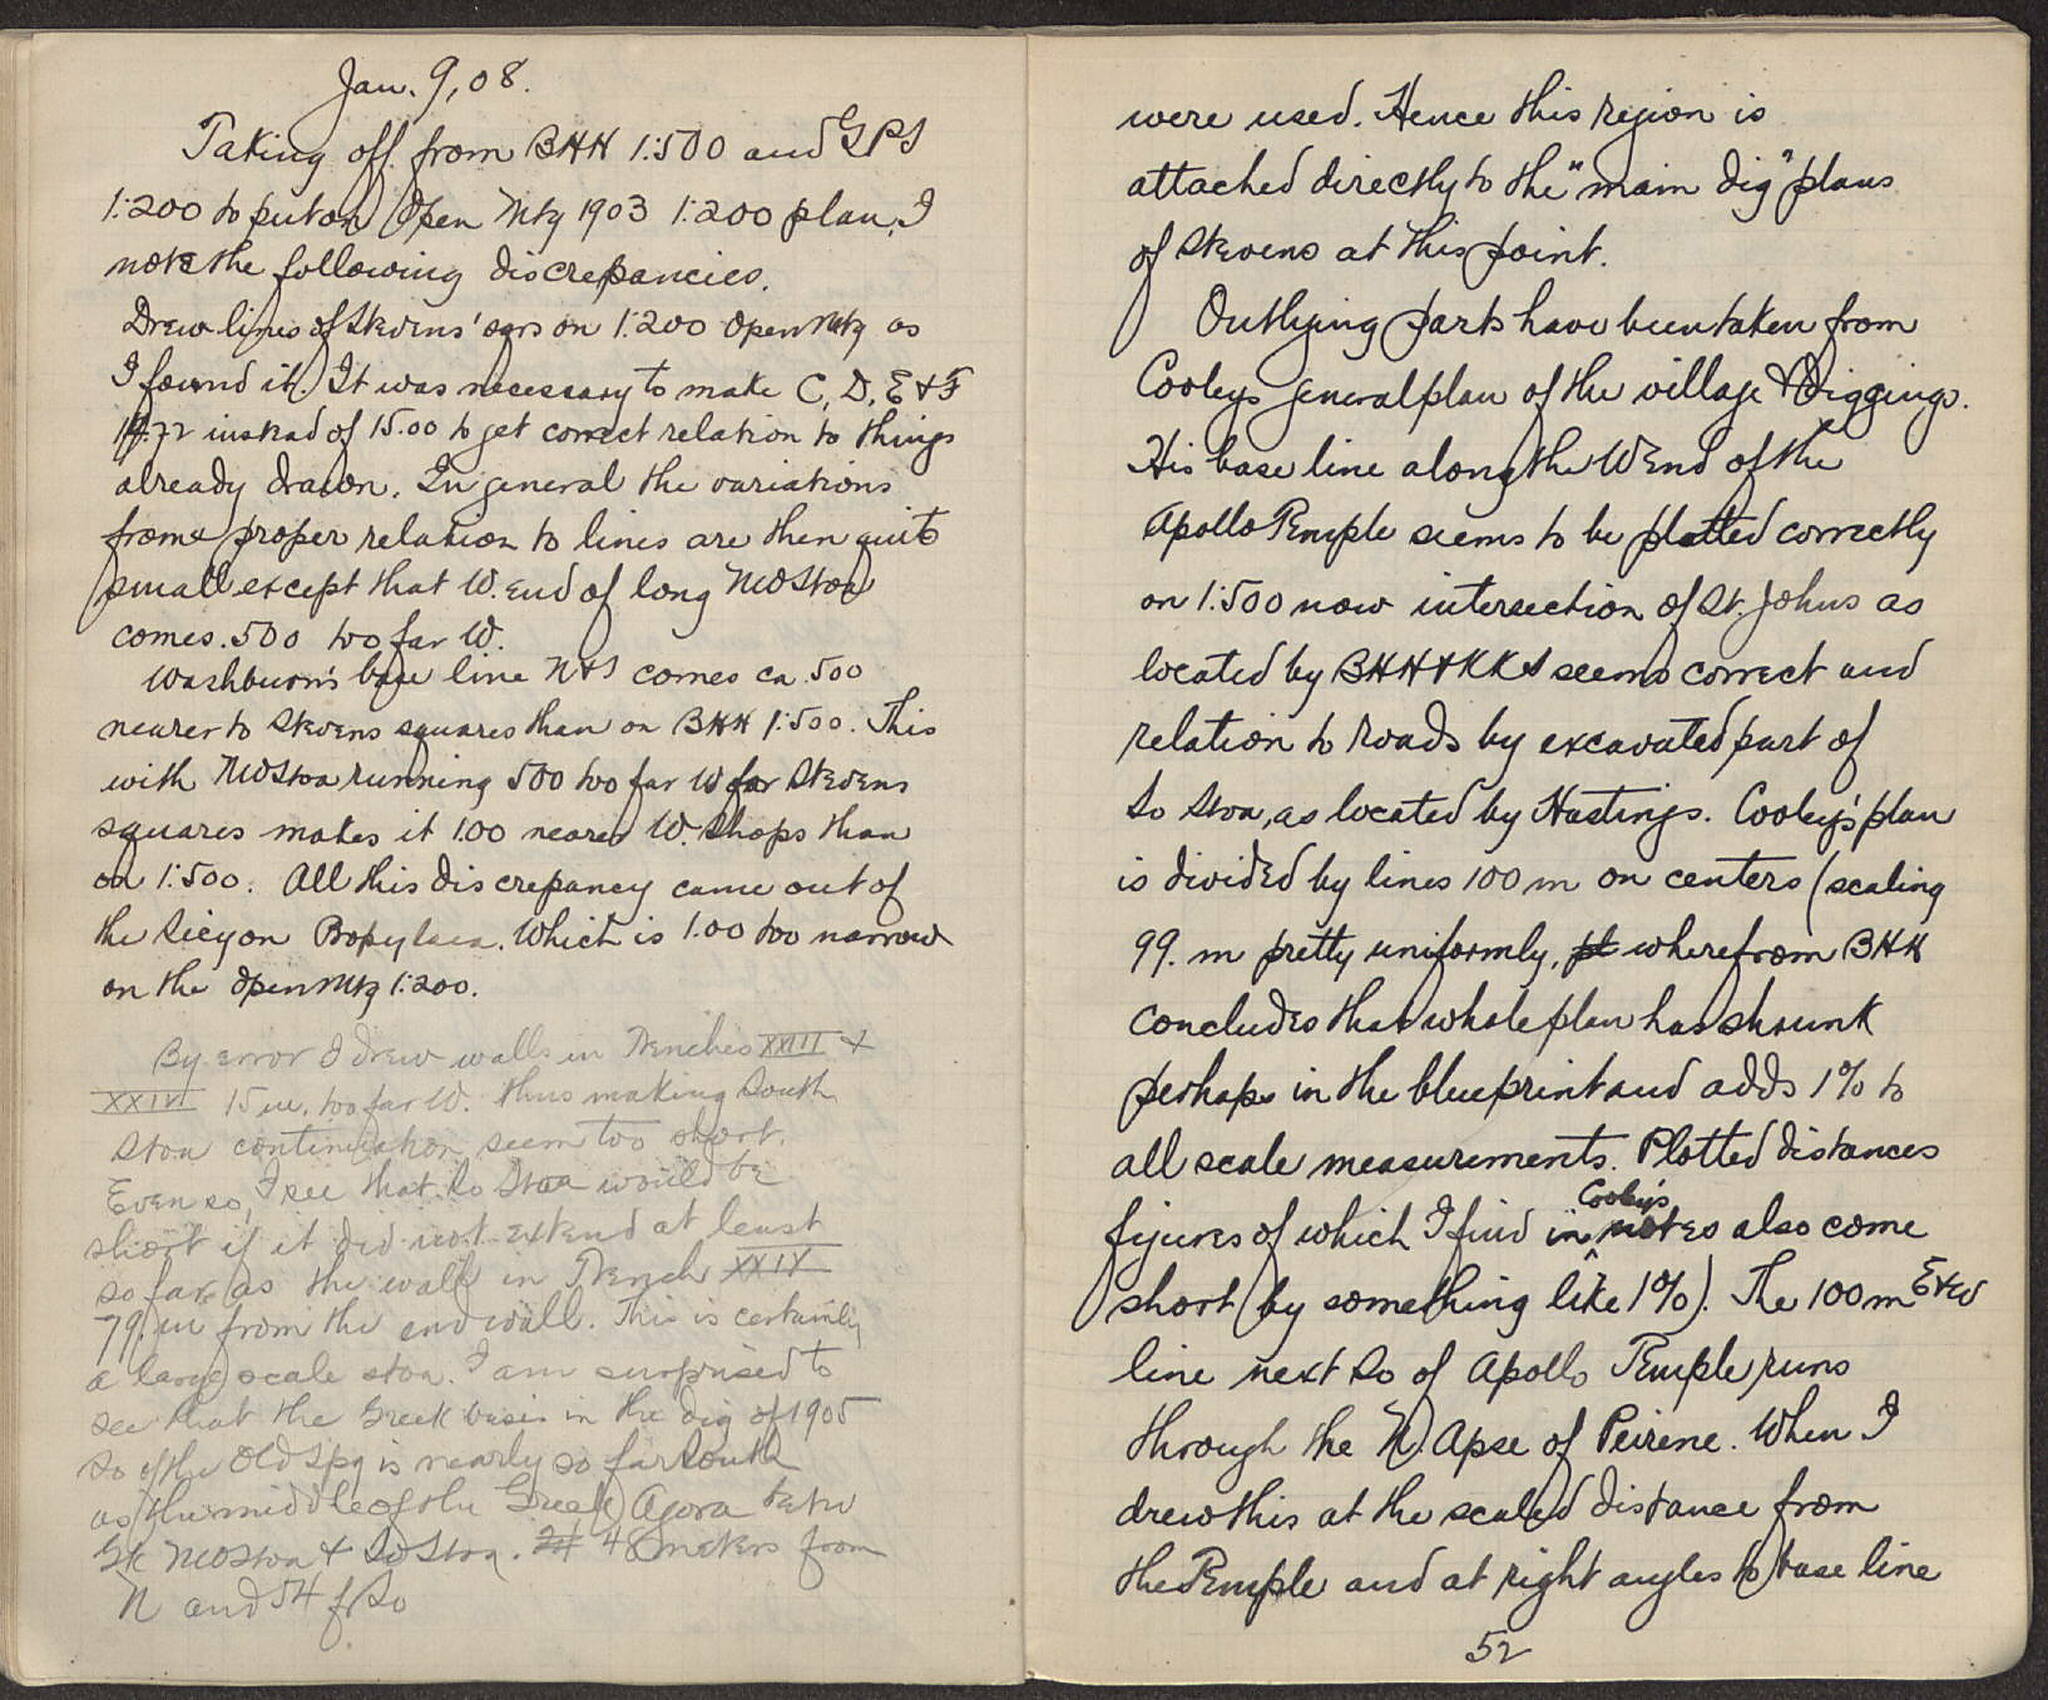 Jan. 9, 08.
Taking off from BHH 1:500 and GPS
1:200 to put on Open Mtg 1903 1:200 plan, I
note the following discrepancies.
Drew lines of Stevens' sqrs on 1:200 Open Mtg as
I found it. It was necessary to make C, D, E & F
14.72 instead of 15.00 to get correct relation to things
already drawn. In general the variations
from proper relation to lines are then quite
small except that W. end of long NW Stoa
comes .500 too far W.
Washburn's base line N & S comes ca .500
nearer to Stevens squares than on BHH 1:500. This
with NW Stoa running 500 too far W for Stevens
squares makes it 1.00 nearer W. Shops than
on 1:500. All this discrepancy came out of
the Sicyon Propylaea. Which is 1.00 too narrow
on the Open Mtg 1:200.
By error I drew walls in Trenches XXIII &
XXIV 15 m. too far W. thus making South
Stoa continuation seem too short.
Even so, I see that So Stoa would be
short if it did not extend at least
so far as the wall in Trench XXIX
79. m from the end wall. This is certainly
a large scale stoa. I am surprised to
see that the Greek basis in the dig of 1905
So of the Old Spg is nearly so far South
as the middle of the Greek Agora betw
Gk NW Stoa & So Stoa. 48 meters from
N and 54 f So
were used. Hence this region is
attached directly to the "main dig" plans
of Stevens at this point.
Outlying parts have been taken from
Cooleys general plan of the village & diggings.
His base line along the W End of the
Apollo Temple seems to be plotted correctly
on 1:500 now intersection of St. Johns as
located by BHH & KKS seems correct and
relation to roads by excavated part of
So Stoa, as located by Hastings. Cooley's plan
is divided by lines 100 m on centers (scaling
99. m pretty uniformly, wherefrom BHH
concludes that whole plan has shrunk
perhaps in the blueprint and adds 1% to
all scale measurements. Plotted distances
figures of which I find in Cooley's notes also come
short by something like 1%). The 100 m E & W
line next So of Apollo Temple runs
through the N. Apse of Peirene. When I
drew this at the scaled distance from
the Temple and at right angles to base line
52